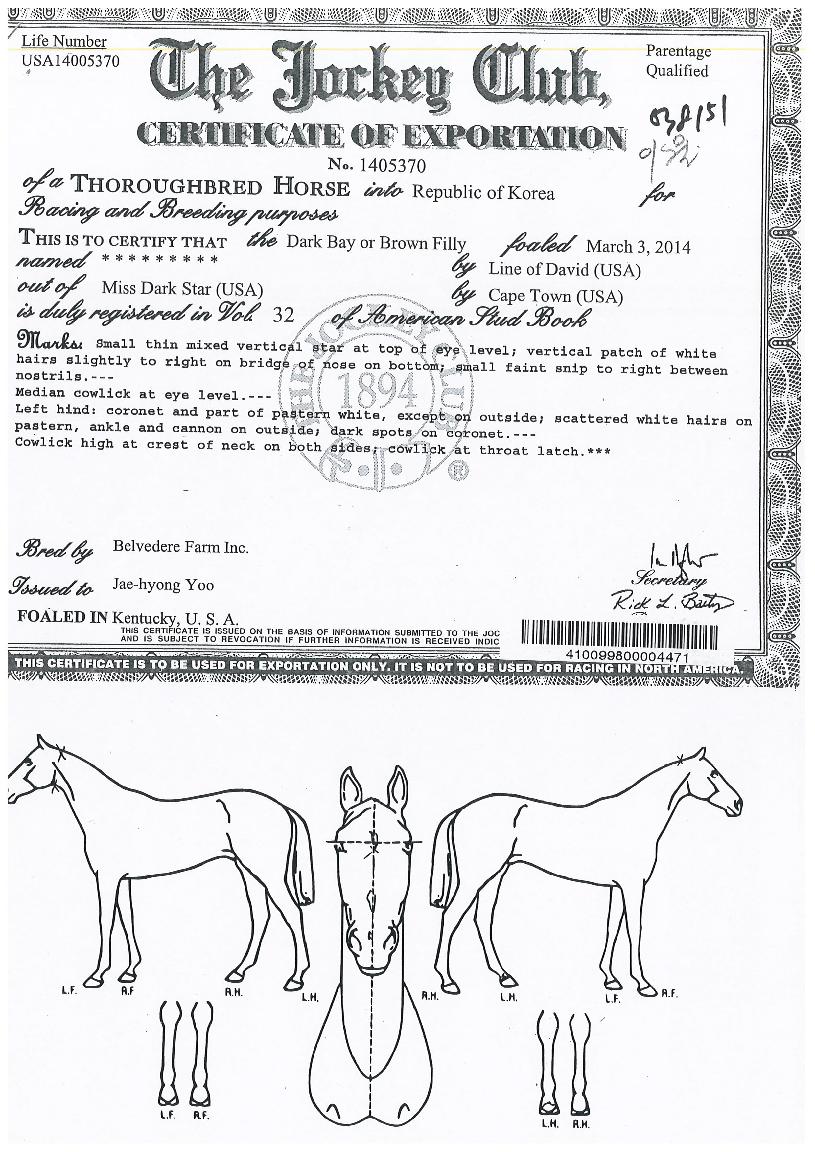 Life Number
USA14005370
The Jockey Club,
Parentage
Qualified
038151
CERTIFICATE OF EXPORTATION
No. 1405370
of a THOROUGHBRED HORSE into Republic of Korea for
Racing and Breeding purposes
THIS IS TO CERTIFY THAT the Dark Bay or Brown Filly foaled March 3, 2014
named * * * * * * * * * by Line of David (USA)
out of Miss Dark Star (USA) by Cape Town (USA)
is duly registered in Vol. 32 of American Stud Book
Marks: Small thin mixed vertical star at top of eye level; vertical patch of white
hairs slightly to right on bridge of nose on bottom; small faint snip to right between
nostrils.---
Median cowlick at eye level.---
Left hind: coronet and part of pastern white, except on outside; scattered white hairs on
pastern, ankle and cannon on outside; dark spots on coronet.---
Cowlick high at crest of neck on both sides; cowlick at throat latch.***
THE JOCKEY CLUB
1894
®
Bred by Belvedere Farm Inc.
Issued to Jae-hyong Yoo
Secretary
FOALED IN Kentucky, U. S. A.
THIS CERTIFICATE IS ISSUED ON THE BASIS OF INFORMATION SUBMITTED TO THE JOC
AND IS SUBJECT TO REVOCATION IF FURTHER INFORMATION IS RECEIVED INDIC
410099800004471
THIS CERTIFICATE IS TO BE USED FOR EXPORTATION ONLY. IT IS NOT TO BE USED FOR RACING IN NORTH AMERICA.
L.F. R.F R.H. L.H. R.H. L.H. L.F. R.F.
L.F. R.F. L.H. R.H.